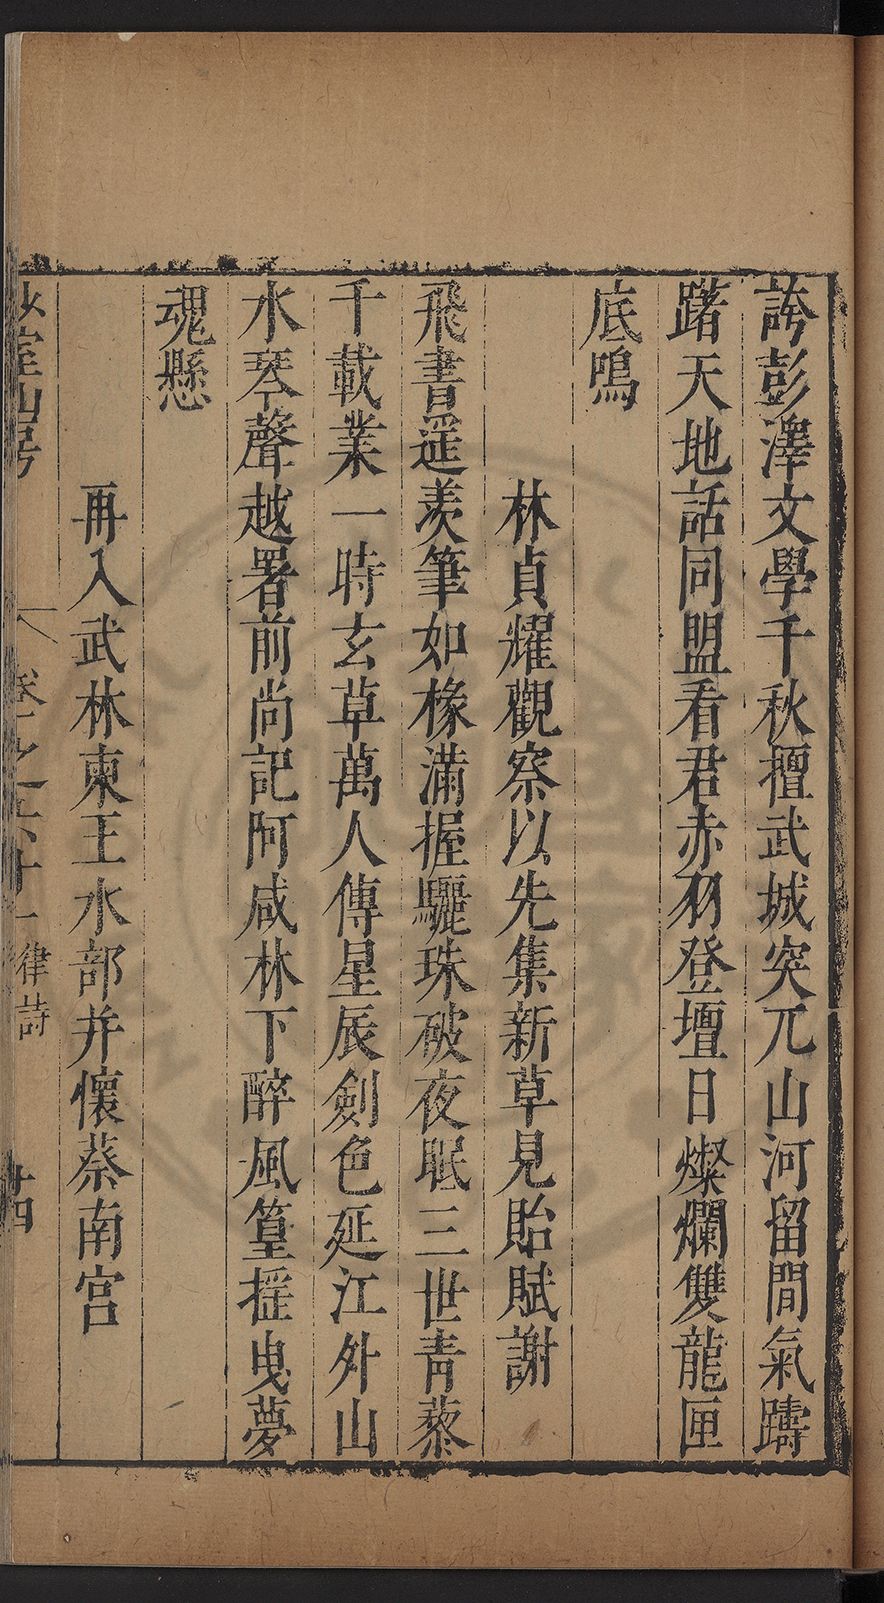 誇彭澤文學千秋擅武城突兀山河留閒氣躊
躇天地話同盟看君赤羽登壇日燦爛雙龍匣
底鳴
林貞耀觀察以先集新草見貽賦謝
飛書遥羨筆如椽滿握驪珠破夜眠三世青藜
千載業一時玄草萬人傳星辰劍色延江外山
水琴聲越署前尚記阿咸林下醉風篁摇曳夢
魂懸
再入武林柬王水部并懷蔡南宫
室山房
卷之六十一 律詩
十四